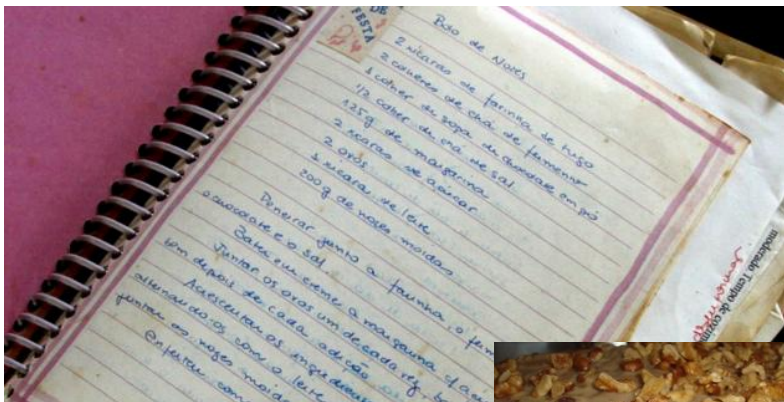 DE
FESTA
Bolo de Nozes
2 xícaras de farinha de trigo
2 colheres de chá de fermento
1 colher de sopa de chocolate em pó
1/2 colher de chá de sal
125g de margarina
2 xícaras de açúcar
2 ovos
1 xícara de leite
200g de nozes moídas
Peneirar junto a farinha, o
o chocolate e o sal.
Bater em creme a margarina
Juntar os ovos um de cada vez,
bem depois de cada adição
Acrescentar os
alternando-os com o leite
juntar as nozes
Enfeitar com
moderado Tempo de